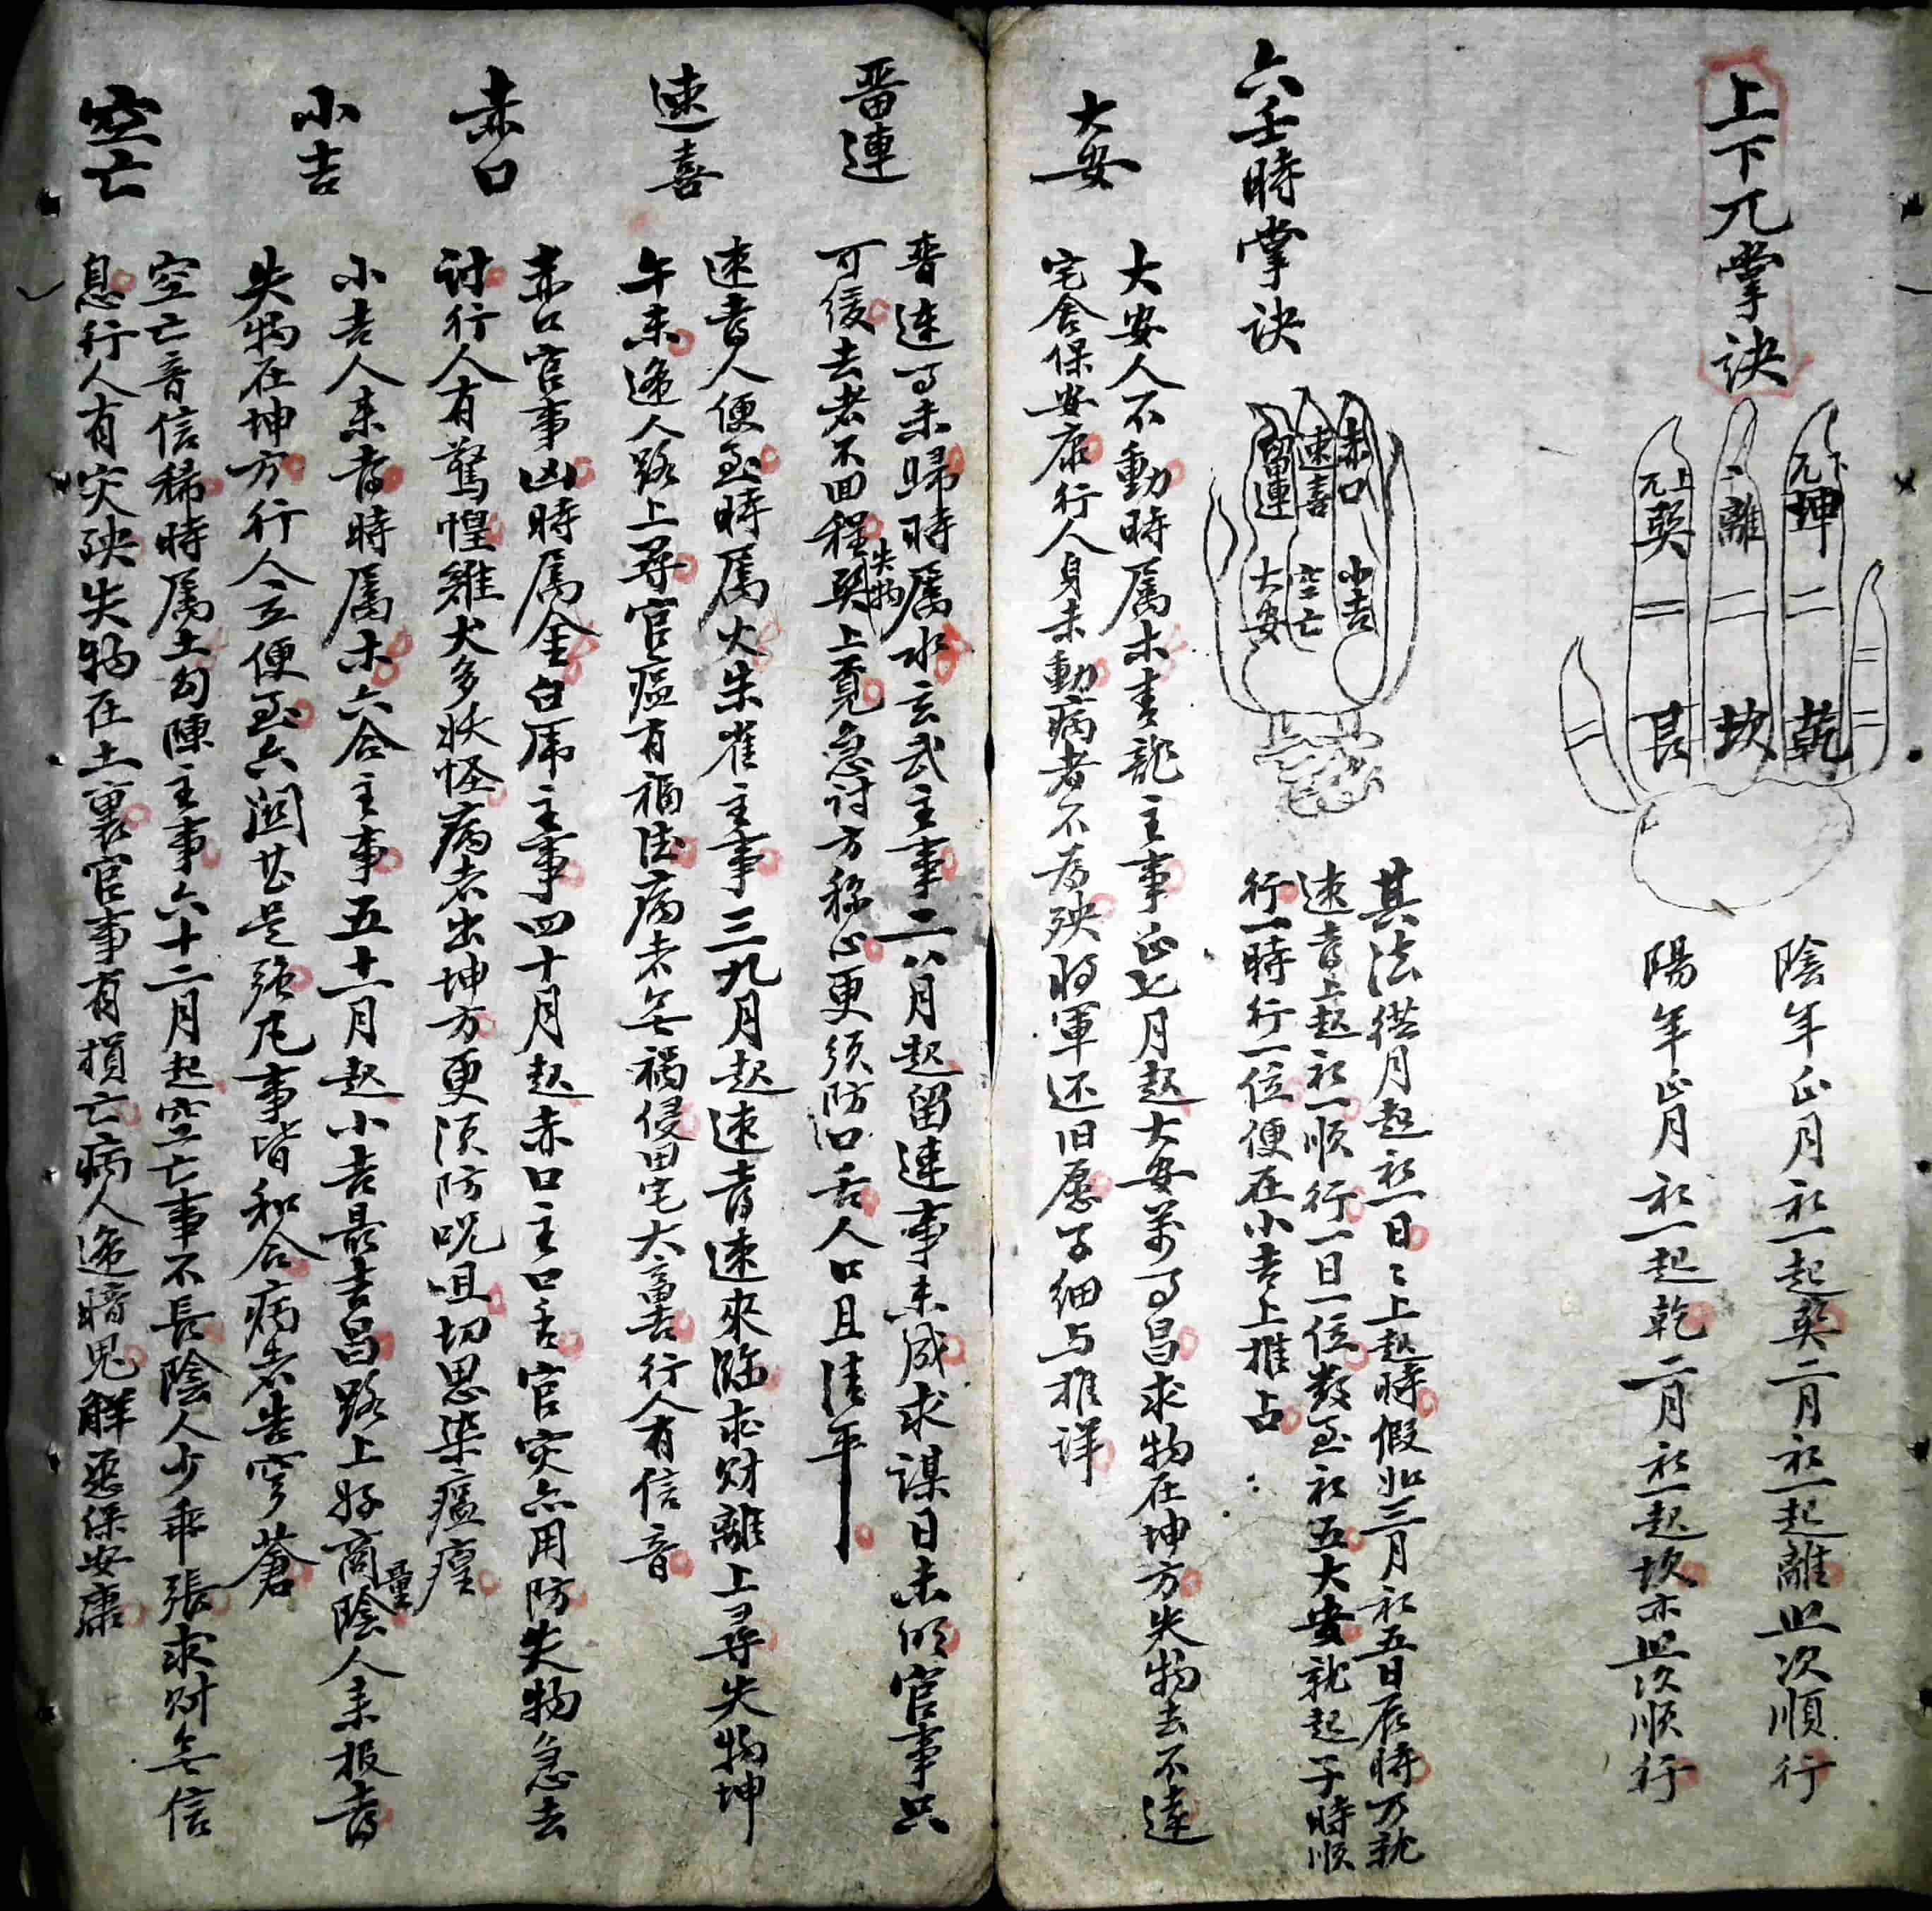 上下兀掌訣
下元
坤
離
上元
巽
乾
坎
艮
陰年正月初一起巽二月初一起離照次順行
陽年正月初一起乾二月初一起坎亦照次順行
六壬時掌訣
赤口
速喜
留連
小吉
空亡
大安
其法從月起初一日〻上起時假如三月初五日辰時乃就
速喜上起初一順行一日一位数至初五大安就起子時順
行一時行一位便在小吉上推占
大安
大安人不動時属木青龍主事正七月起大安萬事昌求物在坤方失物去不遠
宅舍保安康行人身未動病者不為殃将軍还旧愿子细与推详
畱連
畱連事未歸時属水玄武主事二八月起留連事未成求謀日未明官事只
可缓去者不回程失物巽上覓急讨方称心更须防口舌人口且清平
速喜
速喜人便至時属火朱雀主事三九月起速喜速來臨求财離上尋失物坤
午未逢人路上尋官瘟有福德病者無禍侵田宅六畜吉行人有信音
赤口
赤口官事凶時属金白虎主事四十月起赤口主口舌官灾点用防失物急去
讨行人有驚惶雞犬多妖怪病者出坤方更須防呪咀切思染瘟㾮
小吉
小吉人来喜時属木六合主事五十一月起小吉最吉昌路上好商量陰人来报喜
失物在坤方行人立便至六関甚是强凡事皆和合病者告穹蒼
空亡
空亡音信稀時属土勾陳主事六十二月起空亡事不長陰人少乖張求财無信
息行人有灾殃失物在土裏官事有損亡病人逢暗鬼解送保安康